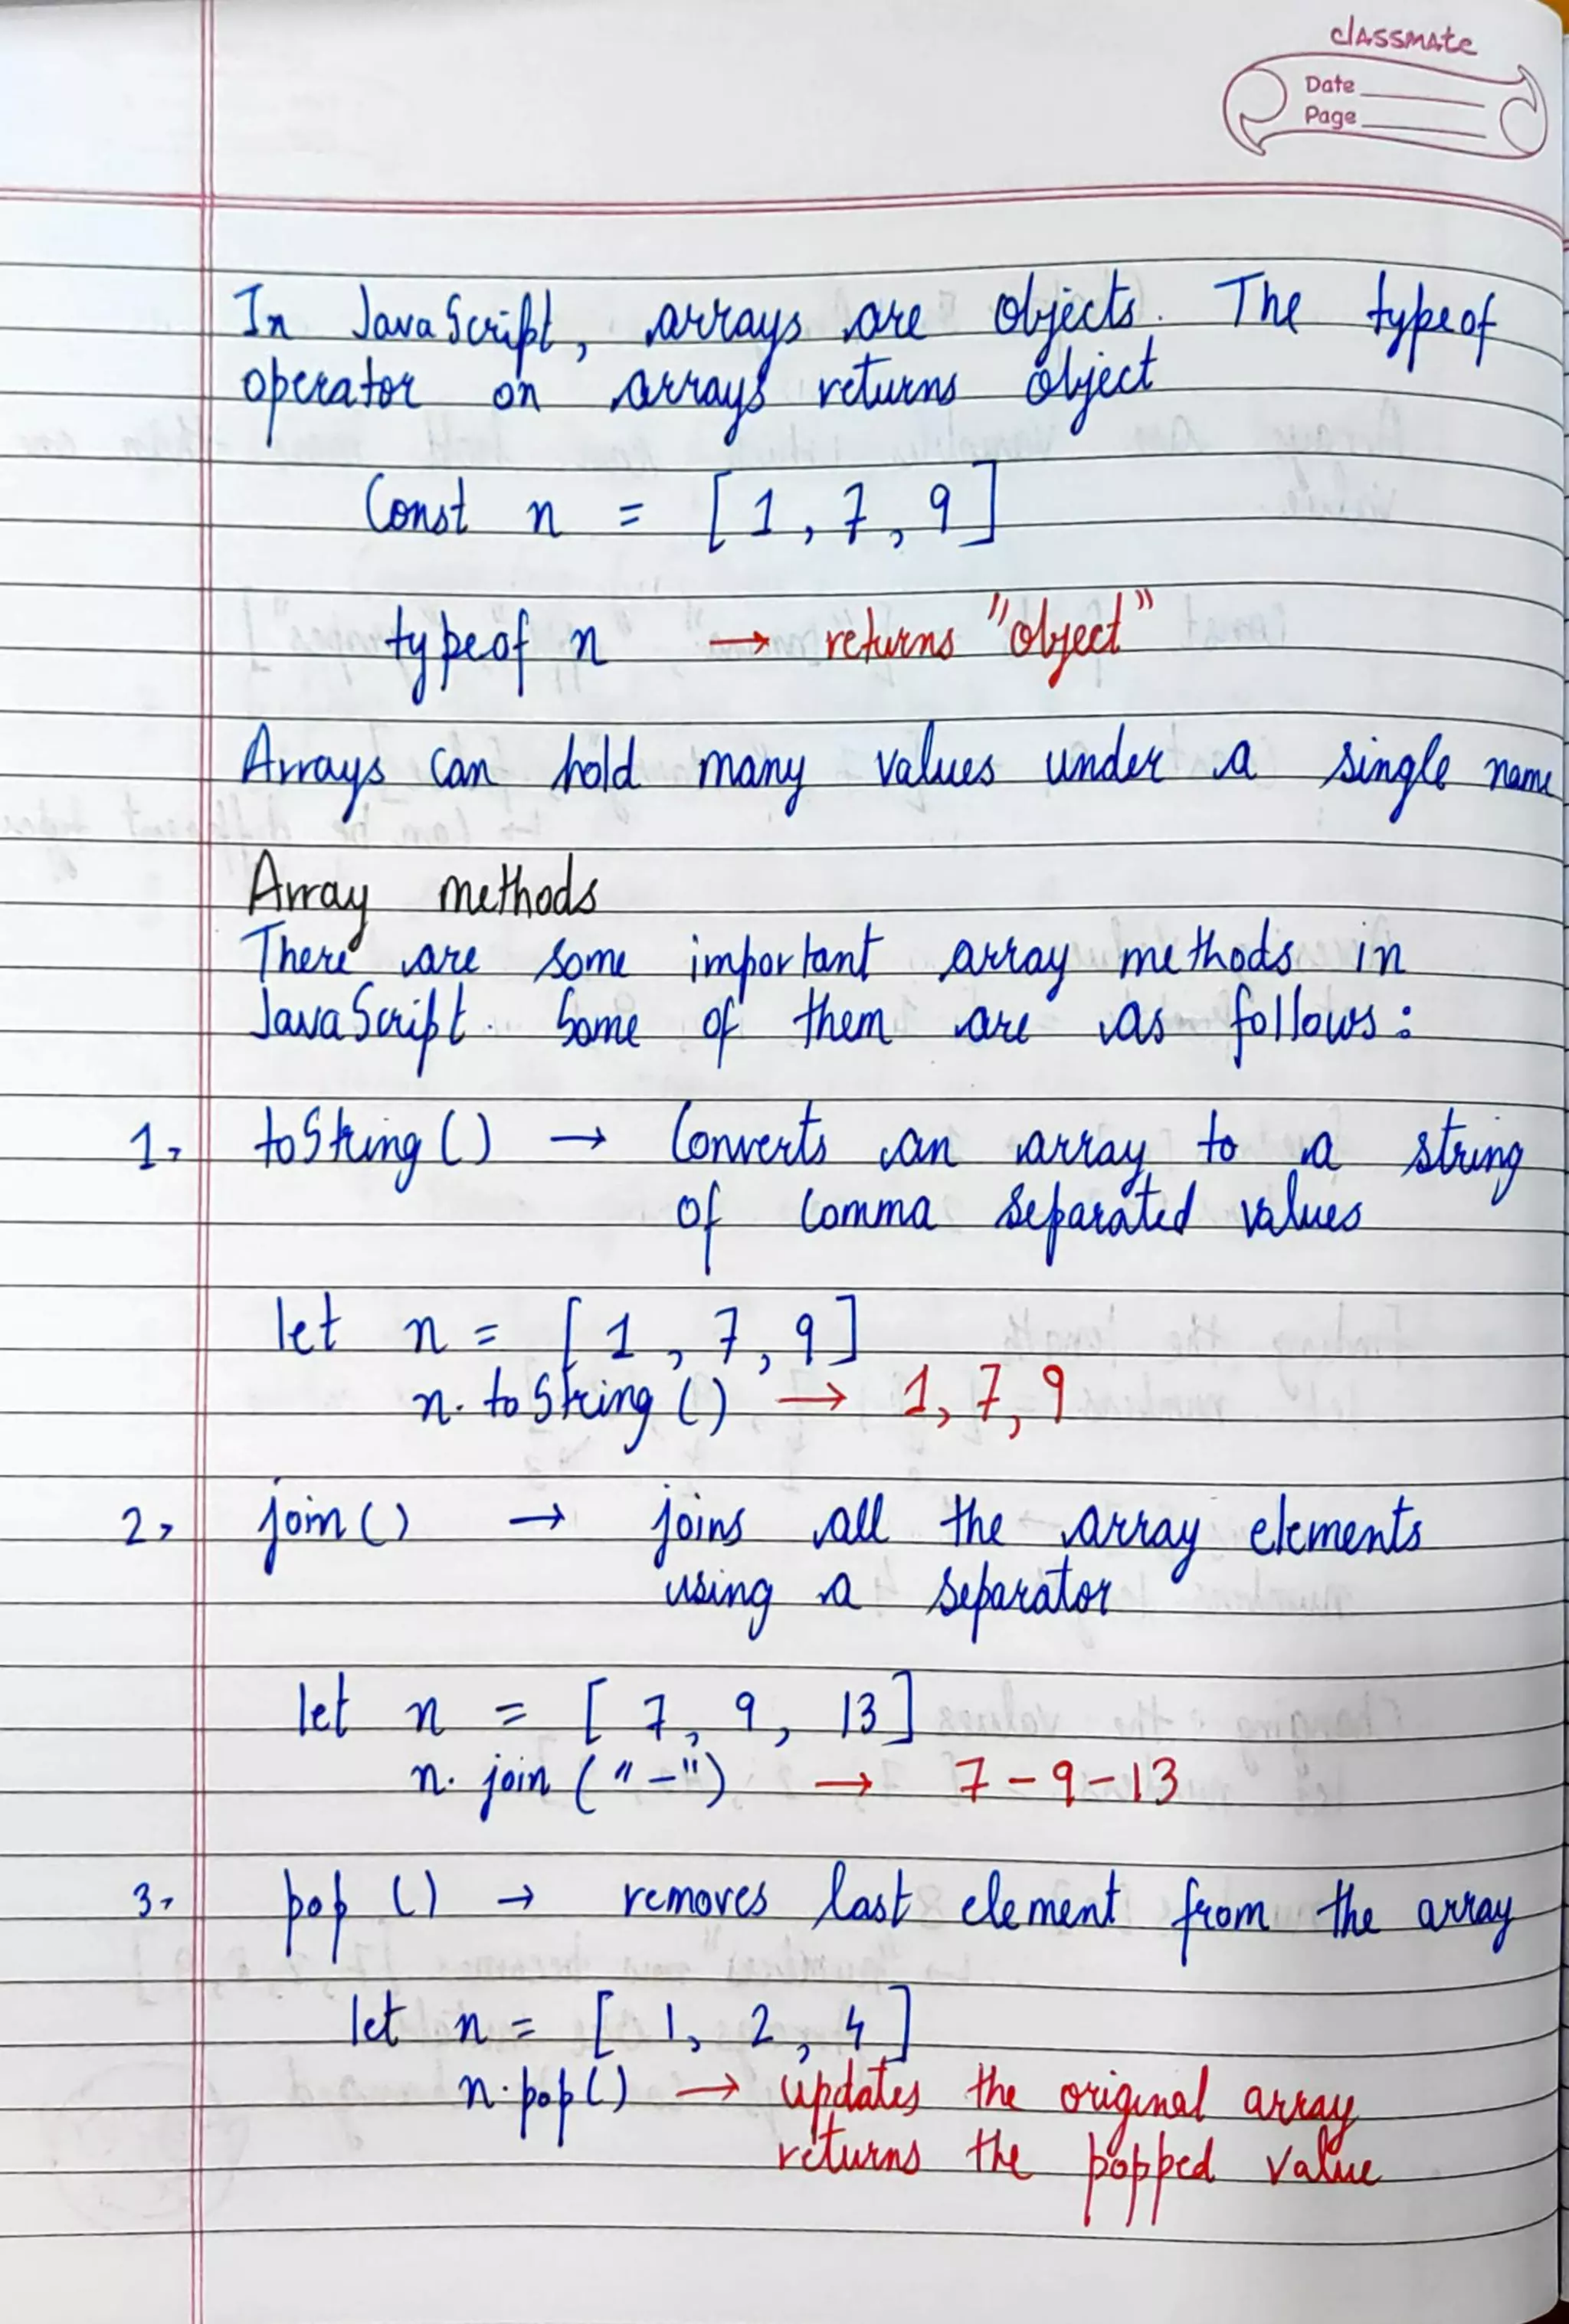 classmate
Date
Page
In JavaScript, arrays are objects. The typeof
operator on arrays returns object
Const n = [1, 7, 9]
typeof n → returns "object"
Arrays can hold many values under a single name
Array methods
There are some important array methods in
JavaScript. Some of them are as follows:
1, toString() → Converts an array to a string
of comma separated values
let n = [1, 7, 9]
n.toString() → 1, 7, 9
2, join() → joins all the array elements
using a separator
let n = [7, 9, 13]
n.join("-") → 7-9-13
3, pop() → removes last element from the array
let n = [1, 2, 4]
n.pop() → updates the original array
returns the popped value